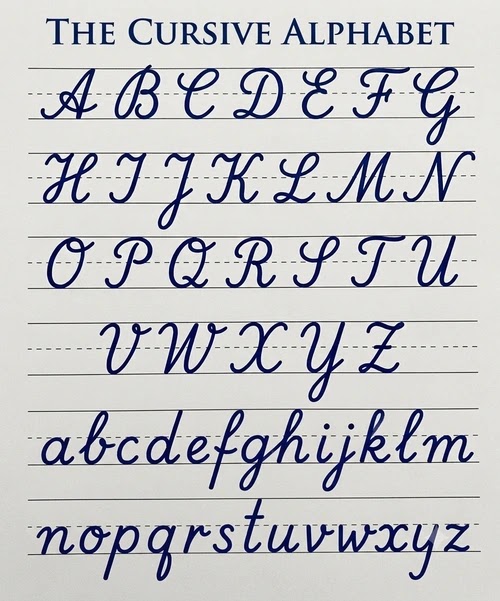 THE CURSIVE ALPHABET
A B C D E F G
H I J K L M N
O P Q R S T U
V W X Y Z
abcdefghijklm
nopqrstuvwxyz